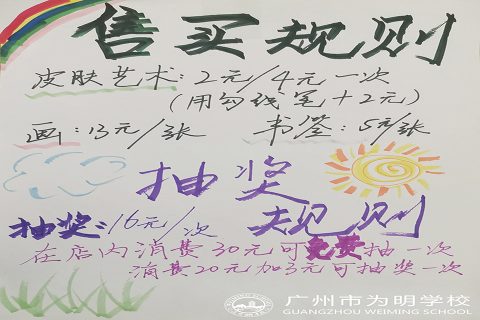 售买规则
皮肤艺术:2元/4元一次
(用勾线笔+2元)
画:13元/张 书签:5元/张
抽奖
规则
抽奖:16元/次
在店内消费30元可免费抽一次
消费20元加3元可抽奖一次
广州市为明学校
GUANGZHOU WEIMING SCHOOL